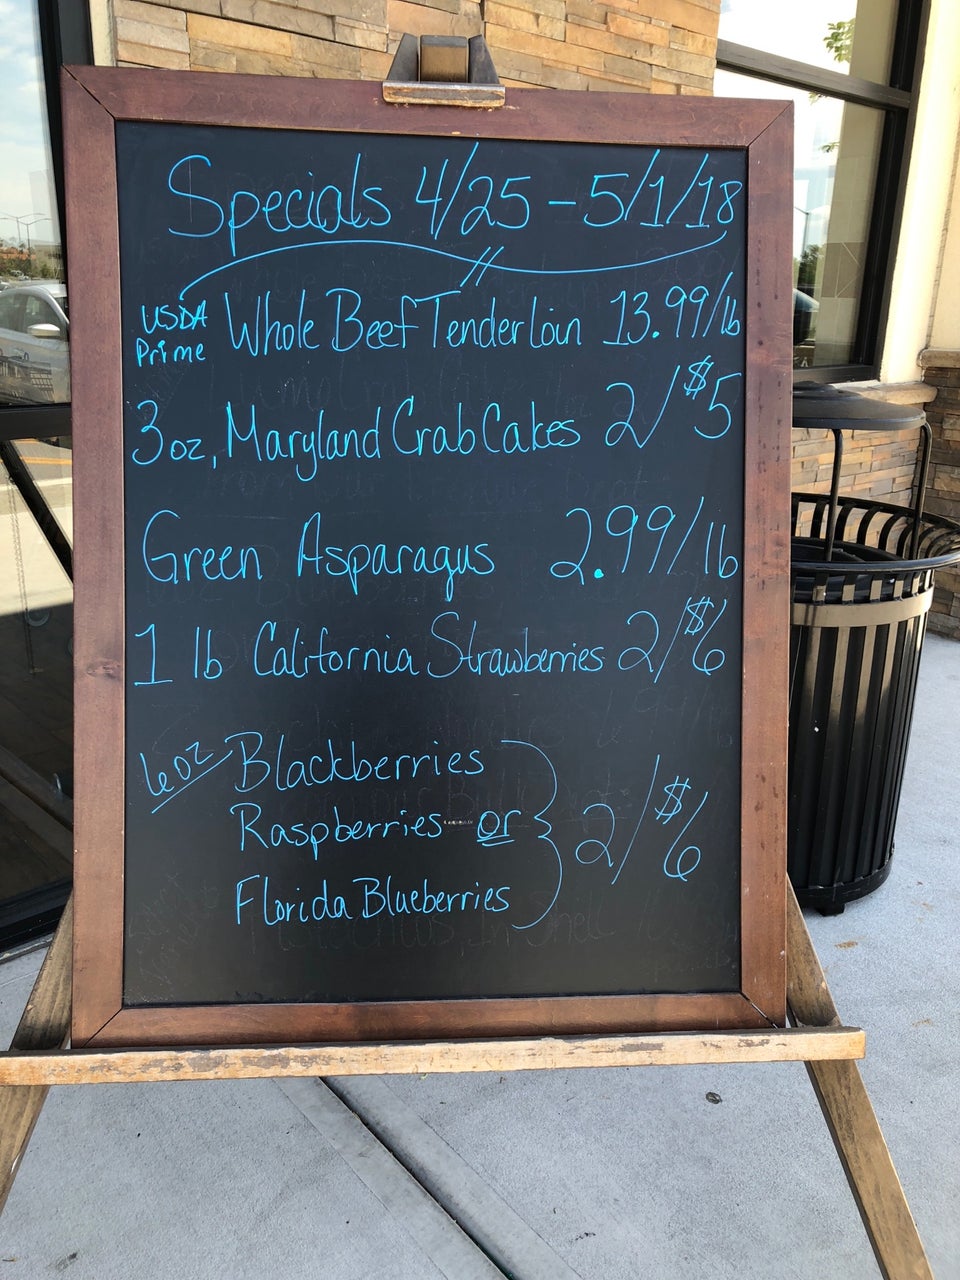 Specials 4/25 - 5/1/18
USDA Prime Whole Beef Tenderloin 13.99/lb
3 oz, Maryland Crab Cakes 2/$5
Green Asparagus 2.99/lb
1 lb California Strawberries 2/$6
6oz Blackberries
Raspberries or 2/$6
Florida Blueberries